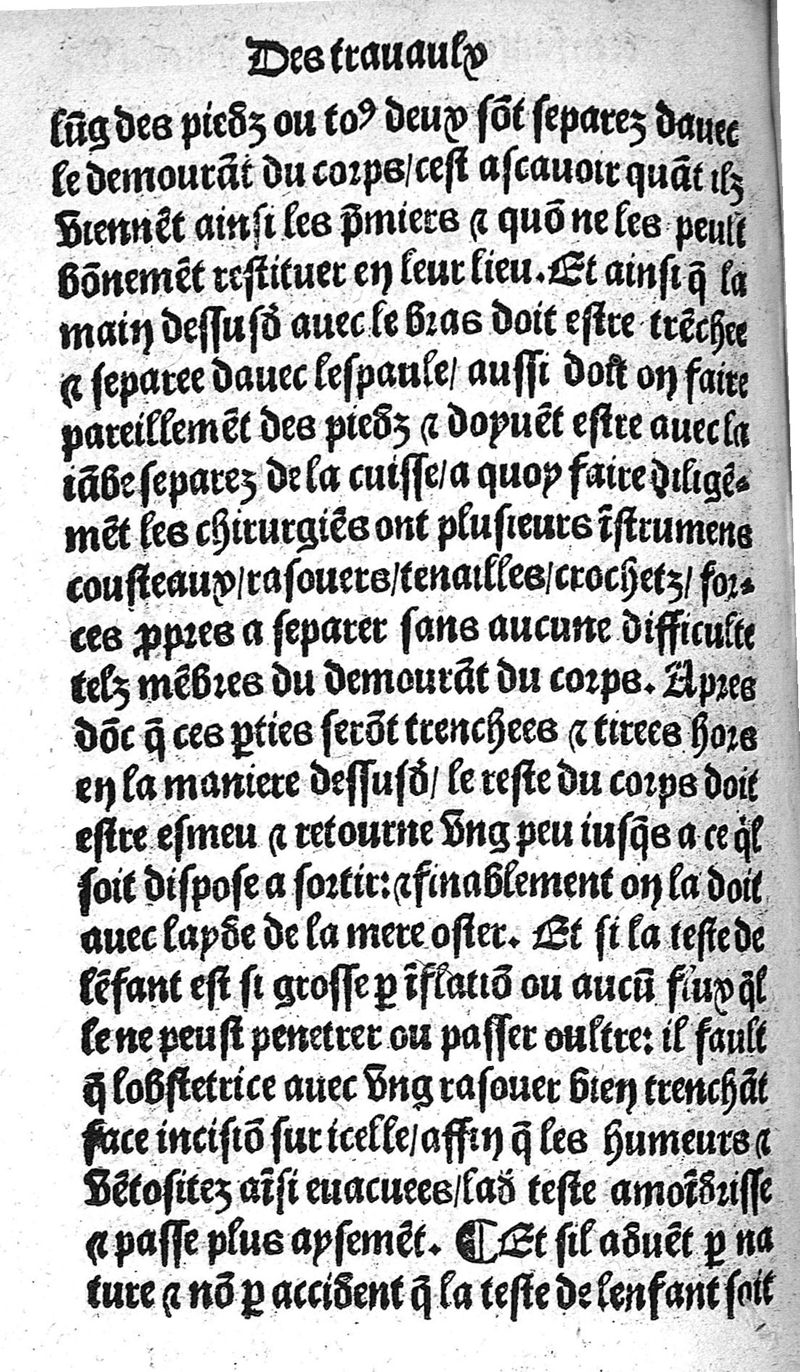 Des trauaulx
lũg des piedz ou to⁹ deux sõt separez dauec
le demourãt du corps/cest ascauoir quãt ilz
viennẽt ainsi les p̃miers ⁊ quõ ne les peult
bõnemẽt restituer en leur lieu. Et ainsi q̃ la
main dessusd̃ auec le bras doit estre trẽchee
⁊ separee dauec lespaule/ aussi doit on faire
pareillemẽt des piedz ⁊ doyuẽt estre auec la
iãbe separez de la cuisse/a quoy faire diligẽ⸗
mẽt les chirurgiẽs ont plusieurs ĩstrumens
cousteaux/rasouers/tenailles/crochetz/ for⸗
ces ꝓpres a separer sans aucune difficulte
telz mẽbres du demourãt du corps. Apres
dõc q̃ ces ꝑties serõt trenchees ⁊ tirees hors
en la maniere dessusd̃/ le reste du corps doit
estre esmeu ⁊ retourne vng peu iusq̃s a ce q̃l
soit dispose a sortir:⁊finablement on la doit
auec layde de la mere oster. Et si la teste de
lẽfant est si grosse ꝑ ĩflatiõ ou aucũ flux q̃l
le ne peust penetrer ou passer oultre: il fault
q̃ lobstetrice auec vng rasouer bien trenchãt
face incisiõ sur icelle/affin q̃ les humeurs ⁊
vẽtositez aĩsi euacuees/lad̃ teste amoĩdrisse
⁊ passe plus aysemẽt. ¶Et sil aduẽt ꝑ na
ture ⁊ nõ ꝑ accident q̃ la teste de lenfant soit